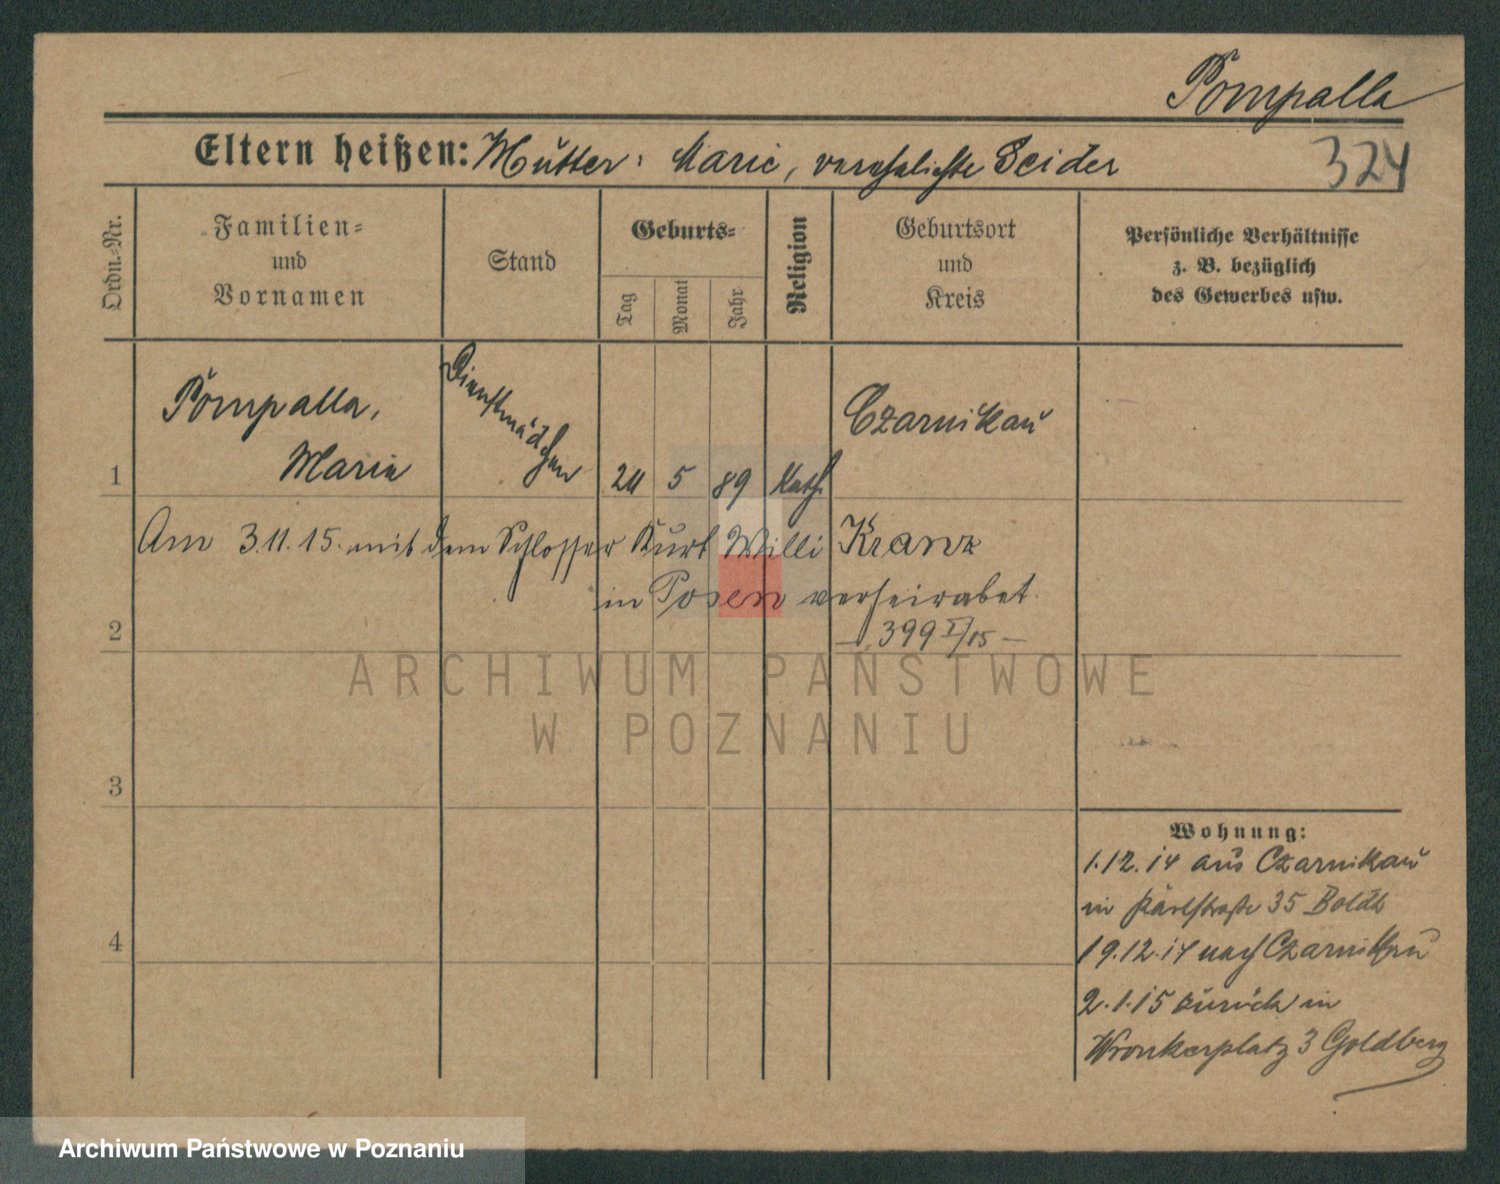 Pompalla
Eltern heißen: Mutter: Marie, verehelichte Seider
324
Ordn.-Nr.
Familien-
und
Vornamen
Stand
Geburts-
Tag
Monat
Jahr
Religion
Geburtsort
und
Kreis
Persönliche Verhältnisse
z. B. bezüglich
des Gewerbes usw.
1
Pompalla,
Marie
Dienstmädchen
24 5 89 Kath.
Czarnikau
Am 3.11.15. mit dem Schlosser Kurt Willi Kranz
in Posen verheiratet.
2
399 I/15
ARCHIWUM PAŃSTWOWE
W POZNANIU
3
4
Wohnung:
1.12.14 aus Czarnikau
in Karlstraße 35
19.12.14 nach Czarnikau
2.1.15 zurück in
Wronkerplatz 3 Goldberg
Archiwum Państwowe w Poznaniu